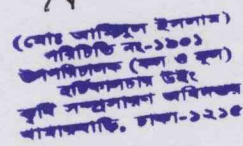 (মোঃ আরিফুল ইসলাম)
পরিচিতি নং-১৯০১
উপপরিচালক (ফল ও ফুল)
হর্টিকালচার উইং
কৃষি সম্প্রসারণ অধিদপ্তর
খামারবাড়ি, ঢাকা-১২১৫